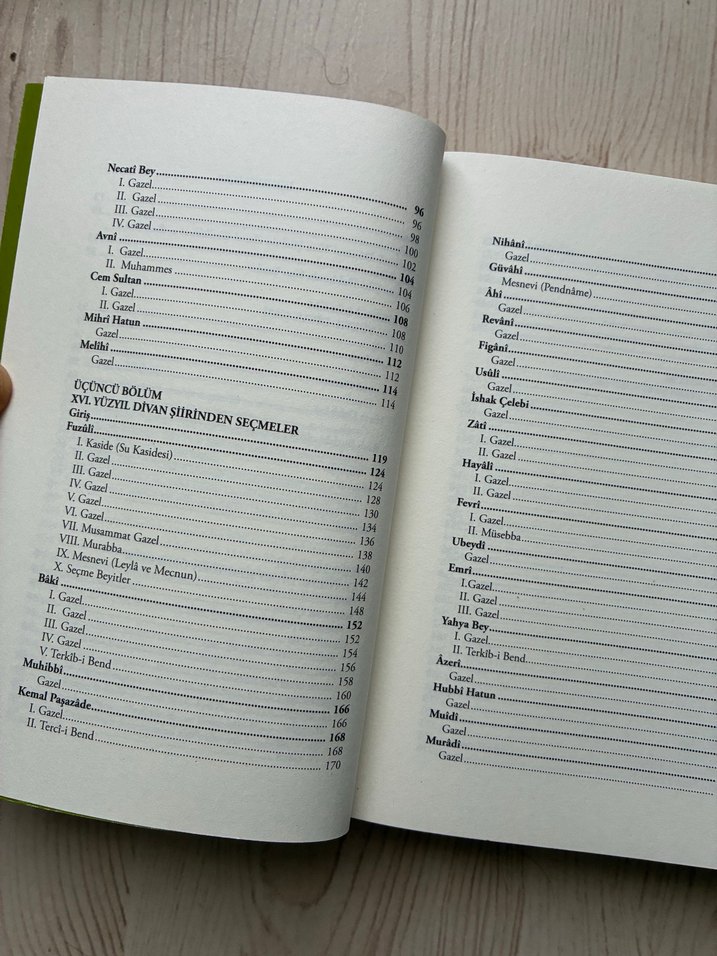 Necatî Bey 96
I. Gazel 96
II. Gazel 98
III. Gazel 100
IV. Gazel 102
Avnî 104
I. Gazel 104
II. Muhammes 106
Cem Sultan 108
I. Gazel 108
II. Gazel 110
Mihrî Hatun 112
Gazel 112
Melîhî 114
Gazel 114
ÜÇÜNCÜ BÖLÜM
XVI. YÜZYIL DİVAN ŞİİRİNDEN SEÇMELER
Giriş 119
Fuzûlî 124
I. Kaside (Su Kasidesi) 124
II. Gazel 128
III. Gazel 130
IV. Gazel 134
V. Gazel 136
VI. Gazel 138
VII. Musammat Gazel 140
VIII. Murabba 142
IX. Mesnevi (Leylâ ve Mecnun) 144
X. Seçme Beyitler 148
Bâkî 152
I. Gazel 152
II. Gazel 154
III. Gazel 156
IV. Gazel 158
V. Terkîb-i Bend 160
Muhibbî 166
Gazel 166
Kemal Paşazâde 168
I. Gazel 168
II. Tercî-i Bend 170
Nihânî
Gazel
Güvâhî
Mesnevi (Pendnâme)
Âhî
Gazel
Revânî
Gazel
Figânî
Gazel
Usûlî
Gazel
İshak Çelebi
Gazel
Zâtî
I. Gazel
II. Gazel
Hayâlî
I. Gazel
II. Gazel
Fevrî
I. Gazel
II. Müsebba
Ubeydî
Gazel
Emrî
I.Gazel
II. Gazel
III. Gazel
Yahya Bey
I. Gazel
II. Terkîb-i Bend
Âzerî
Gazel
Hubbî Hatun
Gazel
Muîdî
Gazel
Murâdî
Gazel